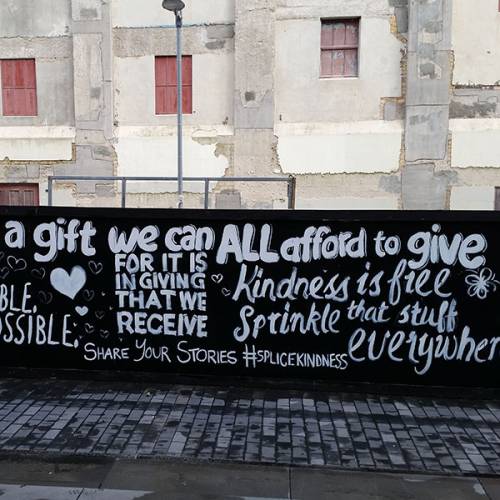 a gift we can ALL afford to give
BLE.
OSSIBLE.
FOR IT IS
IN GIVING
THAT WE
RECEIVE
Kindness is free
Sprinkle that stuff
everywher
SHARE YOUR STORIES #SPLICEKINDNESS